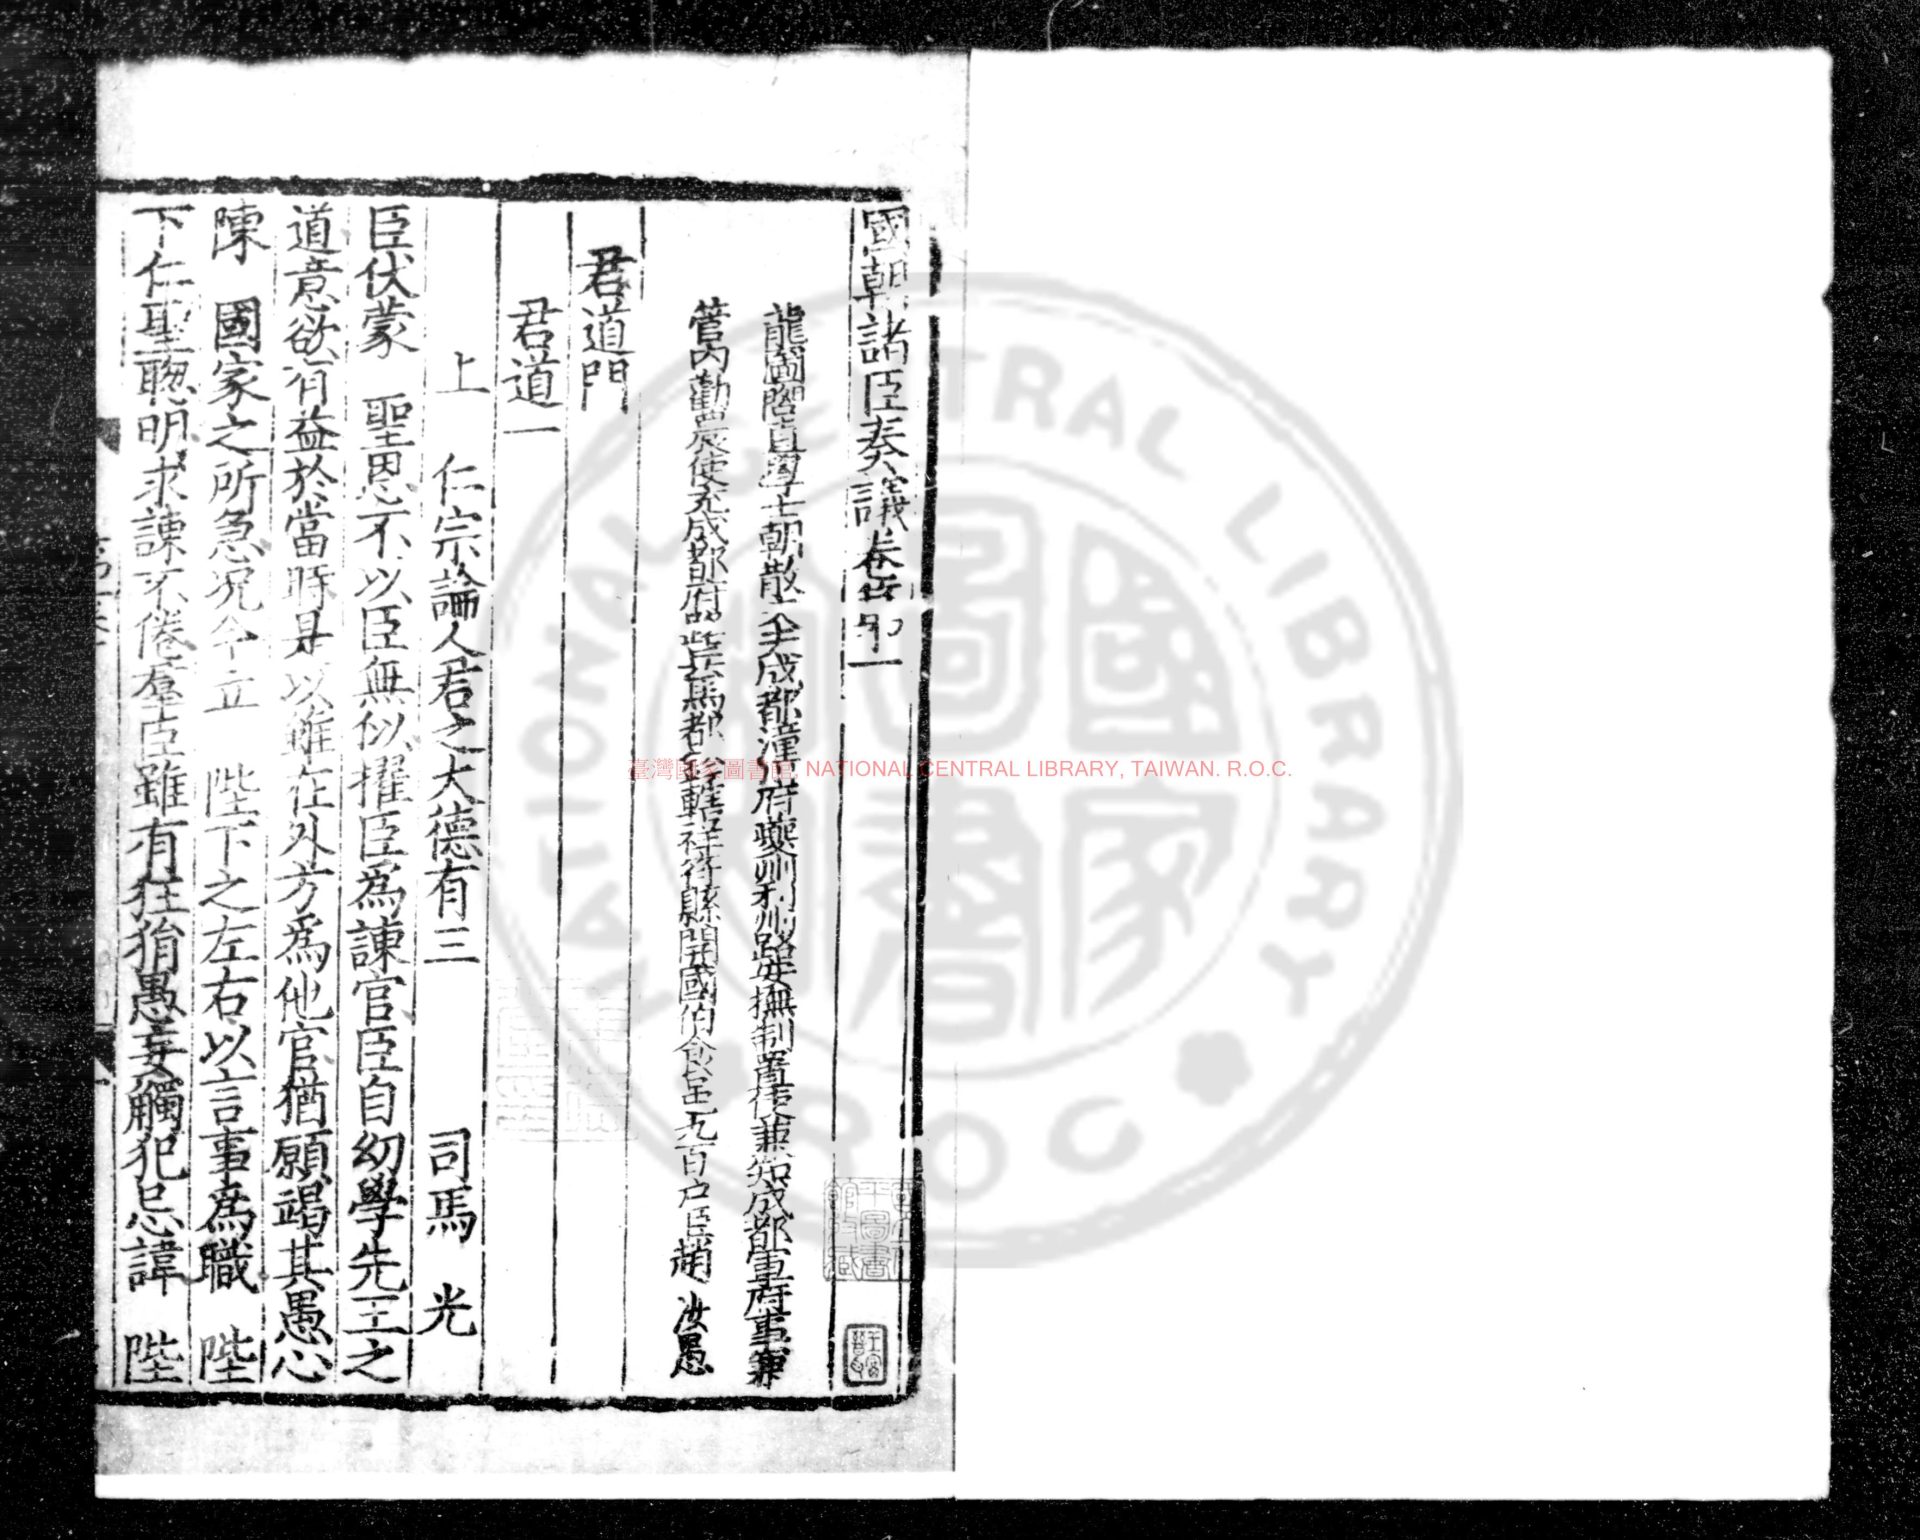 國朝諸臣奏議卷第一
龍圖閣直學士朝散大夫成都潼川府夔州利州路安撫制置使兼知成都軍府事兼
管內勸農使充成都府路兵馬都鈐轄祥符縣開國伯食邑九百户臣趙 汝愚
君道門
君道一
上 仁宗論人君之大德有三 司馬 光
臣伏蒙 聖恩不以臣無似擢臣為諫官臣自幼學先王之
道意欲有益於當時是以雖在外方為他官猶願竭其愚心
陳 國家之所急况今立 陛下之左右以言事為職 陛
下仁聖聦明求諫不倦羣臣雖有狂狷愚妄觸犯忌諱 陛
臺灣國家圖書館, NATIONAL CENTRAL LIBRARY, TAIWAN. R.O.C.
NATIONAL CENTRAL LIBRARY
R.O.C
國家圖書館